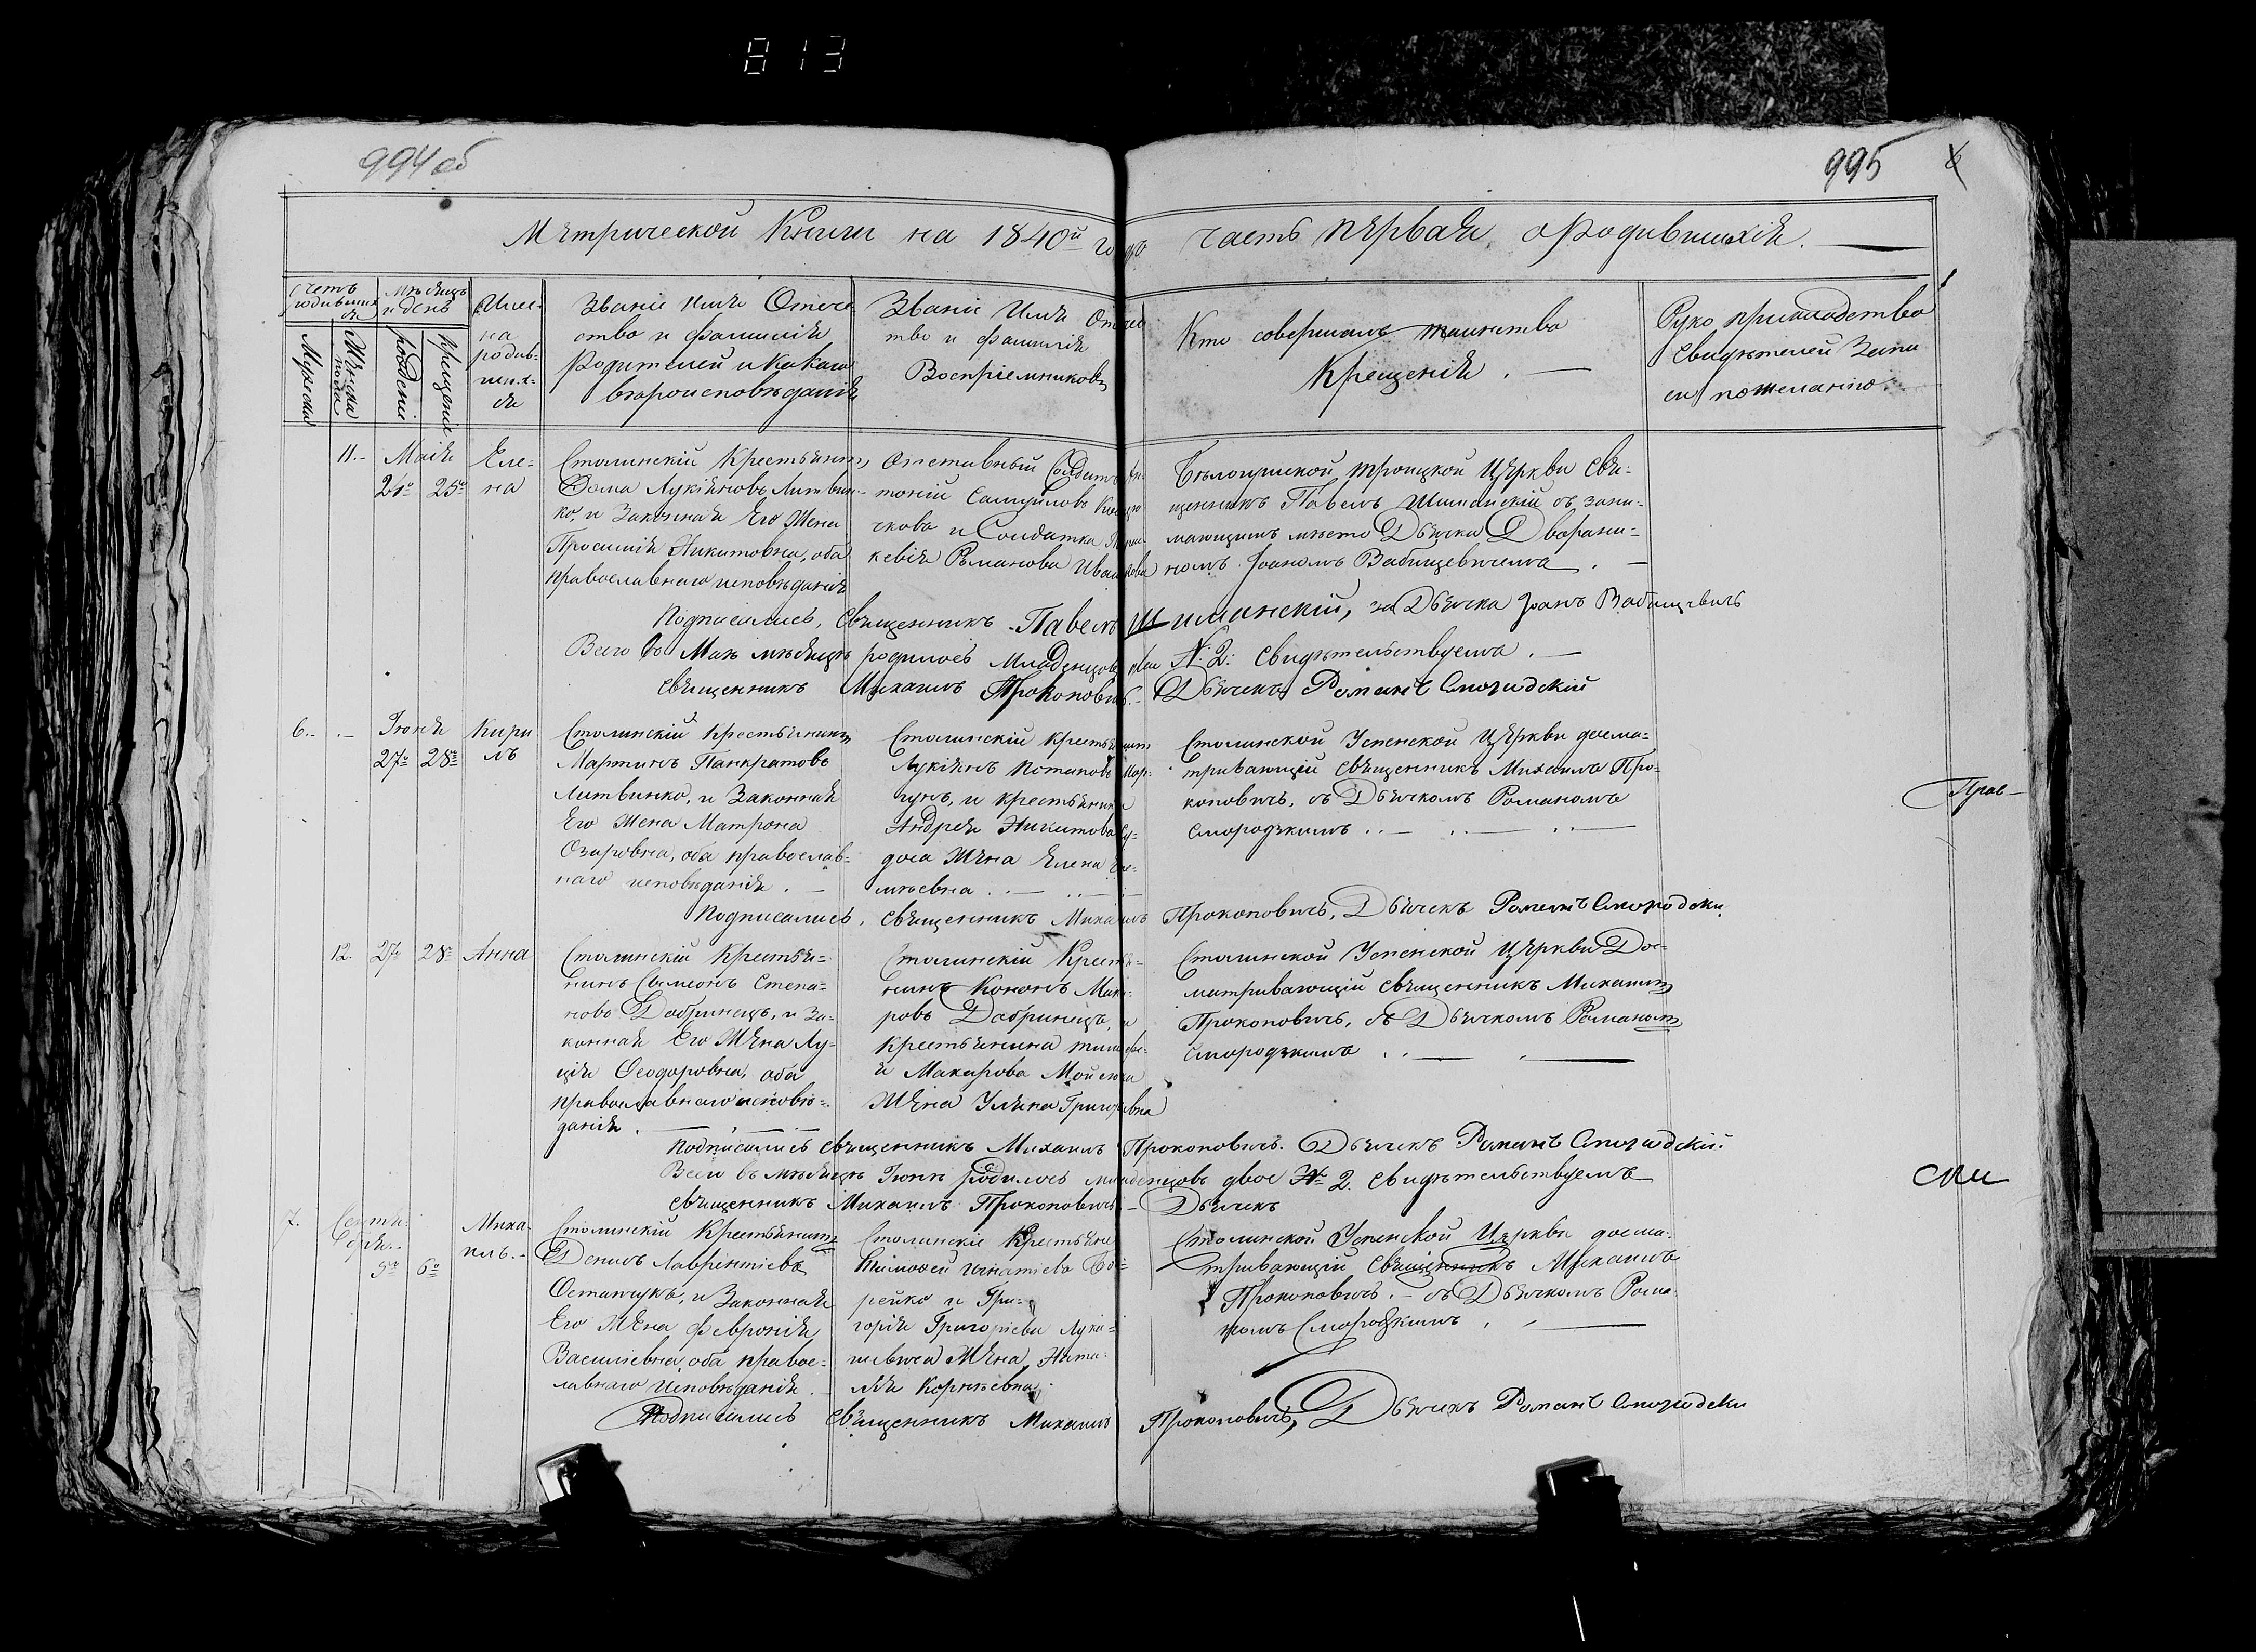 813
994 об
995
Метрической Книги на 1840й года часть первая, о родившихся.
Счетъ родившихся
Мужеска
Женска пола
Мѣсяцъ и день
рожденія
крещенія
Имена родившихся
Званіе имя Отечество и фамилія Родителей и какого вѣроисповѣданія
Званіе Имя Отечество и фамилія Воспріемниковъ
Кто совершалъ таинство Крещенія.
Рукоприкладство свидѣтелей Записи по желанію.
11. Маія 24го 25го
Елена
Столинскій Крестьянинъ
Фома Лукіяновъ Литвин-
ко, и Законная Его Жена
Просимія Никитовна, оба
православнаго исповѣданія
Отставный Солдатъ Ан-
тоній Самуйловъ
и Солдатка Парас-
кевія Романова Иванова
Бѣлогушской Троицкой Церкви Свя-
щенникъ Павелъ Шиманскій съ зани-
мающимъ мѣсто Дьячка Дворяни-
номъ Іоаномъ Вабищевичемъ
Подписались, Священникъ Павелъ Шиманскій, за Дьячка Іоанъ Вабищевичъ
Всего въ Маѣ мѣсяцѣ родилось Младенцовъ двое №: 2: Свидѣтельствуемъ.
Священникъ Михаилъ Прокоповичъ. Дьячекъ Романъ Смородскій
6. Іюня 27го 28го
Кирилъ
Столинскій Крестьянинъ
Мартинъ Панкратовъ
Литвинко, и Законная
Его Жена Матрона
Озаровна, оба православ-
наго исповѣданія.
Столинскій крестьянинъ
Лукіянъ Потаповъ Мар-
чукъ, и крестьянина
Андрея Никитова Су-
доса Жена Елена Ере-
мѣевна
Столинской Успенской Церкви досма-
тривающій Священникъ Михаилъ Про-
коповичъ, съ Дьячкомъ Романомъ
Смородзкимъ
Прав-
Подписались, Священникъ Михаилъ Прокоповичъ, Дьячекъ Романъ Смородски
12. 27го 28го
Анна
Столинскій Крестья-
нинъ Симеонъ Степа-
новъ Добринецъ, и За-
конная Его Жена Лу-
ція Феодоровна, оба
православнаго исповѣ-
данія.
Столинскій Крестья-
нинъ Кононъ Мака-
ровъ Добринецъ, и
Крестьянина Тимофе-
я Макарова Мойсюка
Жена Уляна Григорьевна
Столинской Успенской Церкви Дос-
матривающій Священникъ Михаилъ
Прокоповичъ, съ Дьячкомъ Романомъ
Смородзкимъ
Подписались Священникъ Михаилъ Прокоповичъ. Дьячекъ Романъ Смородскій.
Всего въ мѣсяцѣ Іюнѣ родилось младенцовъ двое № 2. Свидѣтельствуемъ
Священникъ Михаилъ Прокоповичъ - Дьячекъ
7. Сентября 5го 6го
Михаилъ.
Столинскій Крестьянинъ
Денисъ Лаврентіевъ
Остапчукъ, и Законная
Его Жена Февронія
Василіевна, оба правос-
лавнаго Исповѣданія.
Столинскіе Крестьяне
Тимофей Игнатіевъ Бо-
рейко и Гри-
горія Григоріева Лука-
шевича Жена Ната-
лія Корнѣевна
Столинской Успенской Церкви досма-
тривающій Священникъ Михаилъ
Прокоповичъ. - съ Дьячкомъ Рома-
номъ Смородзкимъ
Подписались Священникъ Михаилъ Прокоповичъ, Дьячекъ Романъ Смородски